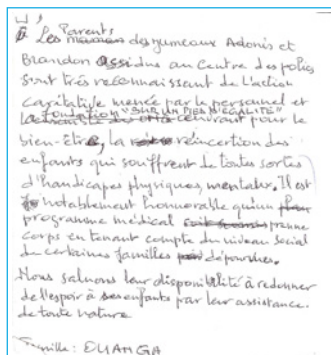 Les Parents des jumeaux Adonis et
Brandon assidus au Centre des polios
sont très reconnaissant de l'action
caritative menée par le personnel et
Fondation "SUR UN PIED D'EGALITE"
oeuvrant pour le
bien-être, la réincertion des
enfants qui souffrent de toutes sortes
d'handicapes physiques, mentales. Il est
notablement honorable qu'un
programme médical prenne
corps en tenant compte du niveau social
de certaines familles dépourvues.
Nous saluons leur disponibilité à redonner
de l'espoir à ses enfants par leur assistance
de toute nature
Famille: